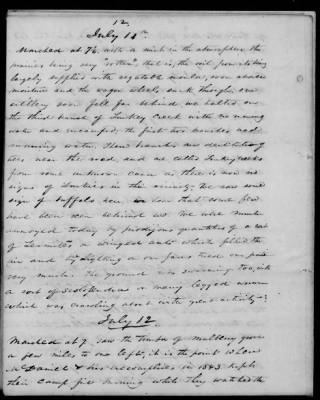 12.
July 11th.
Marched at 7½ with a mist in the atmosphere the
prairies being very "rotten", that is, the soil porous being
largely supplied with vegetable mould, soon absorbs
moisture and the wagon wheels sunk though, our
artillery soon fell far behind we halted on
the third branch of Turkey Creek with no running
water and encamped, the first two branches had
running water. These branches are destitute of
trees near the road, and are called Turkey creeks
from some unknown cause as there is now no
signs of Turkies in the vicinity. We saw some
sign of buffalo here, we hear that some few
have been seen behind us. We were much
annoyed today by prodigious quantities of a sort
of Termites a winged ants which filled the
air and by lighting on our faces tried our patience
very much. The ground was swarming too, with
a sort of scolopendra or many legged worm
which was crawling about with great activity.
July 12.
Marched at 7. saw the timber of mulberry grove
a few miles to our left, it is the point where
McDaniel & his accomplices in 1843 kept
their camp fire burning while they watched the